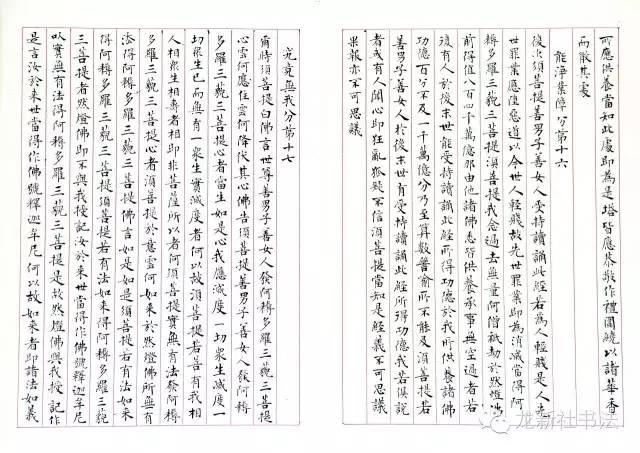 所應供養當知此處即為是塔皆應恭敬作禮圍繞以諸華香
而散其處
能淨業障分第十六
復次須菩提善男子善女人受持讀誦此經若為人輕賤是人先
世罪業應墮惡道以今世人輕賤故先世罪業即為消滅當得阿
耨多羅三藐三菩提須菩提我念過去無量阿僧祇劫於然燈佛
前得值八百四千萬億那由他諸佛悉皆供養承事無空過者若
復有人於後末世能受持讀誦此經所得功德於我所供養諸佛
功德百分不及一千萬億分乃至算數譬喻所不能及須菩提若
善男子善女人於後末世有受持讀誦此經所得功德我若俱說
者或有人聞心即狂亂狐疑不信須菩提當知是經義不可思議
果報亦不可思議
究竟無我分第十七
爾時須菩提白佛言世尊善男子善女人發阿耨多羅三藐三菩提
心云何應住云何降伏其心佛告須菩提善男子善女人發阿耨
多羅三藐三菩提心者當生如是心我應滅度一切眾生滅度一
切眾生已而無有一眾生實滅度者何以故須菩提若菩有我相
人相眾生相壽者相即非菩薩所以者何須菩提實無有法發阿耨
多羅三藐三菩提心者須菩提於意云何如來於然燈佛所無有
法得阿耨多羅三藐三菩提佛言如是如是須菩提若有法如來
得阿耨多羅三藐三菩提須菩提若有法如來得阿耨多羅三藐
三菩提者然燈佛即不與我授記汝於來世當得作佛號釋迦牟尼
以實無有法得阿耨多羅三藐三菩提是故然燈佛與我授記作
是言汝於來世當得作佛號釋迦牟尼何以故如來者即諸法如義
龙新社书法